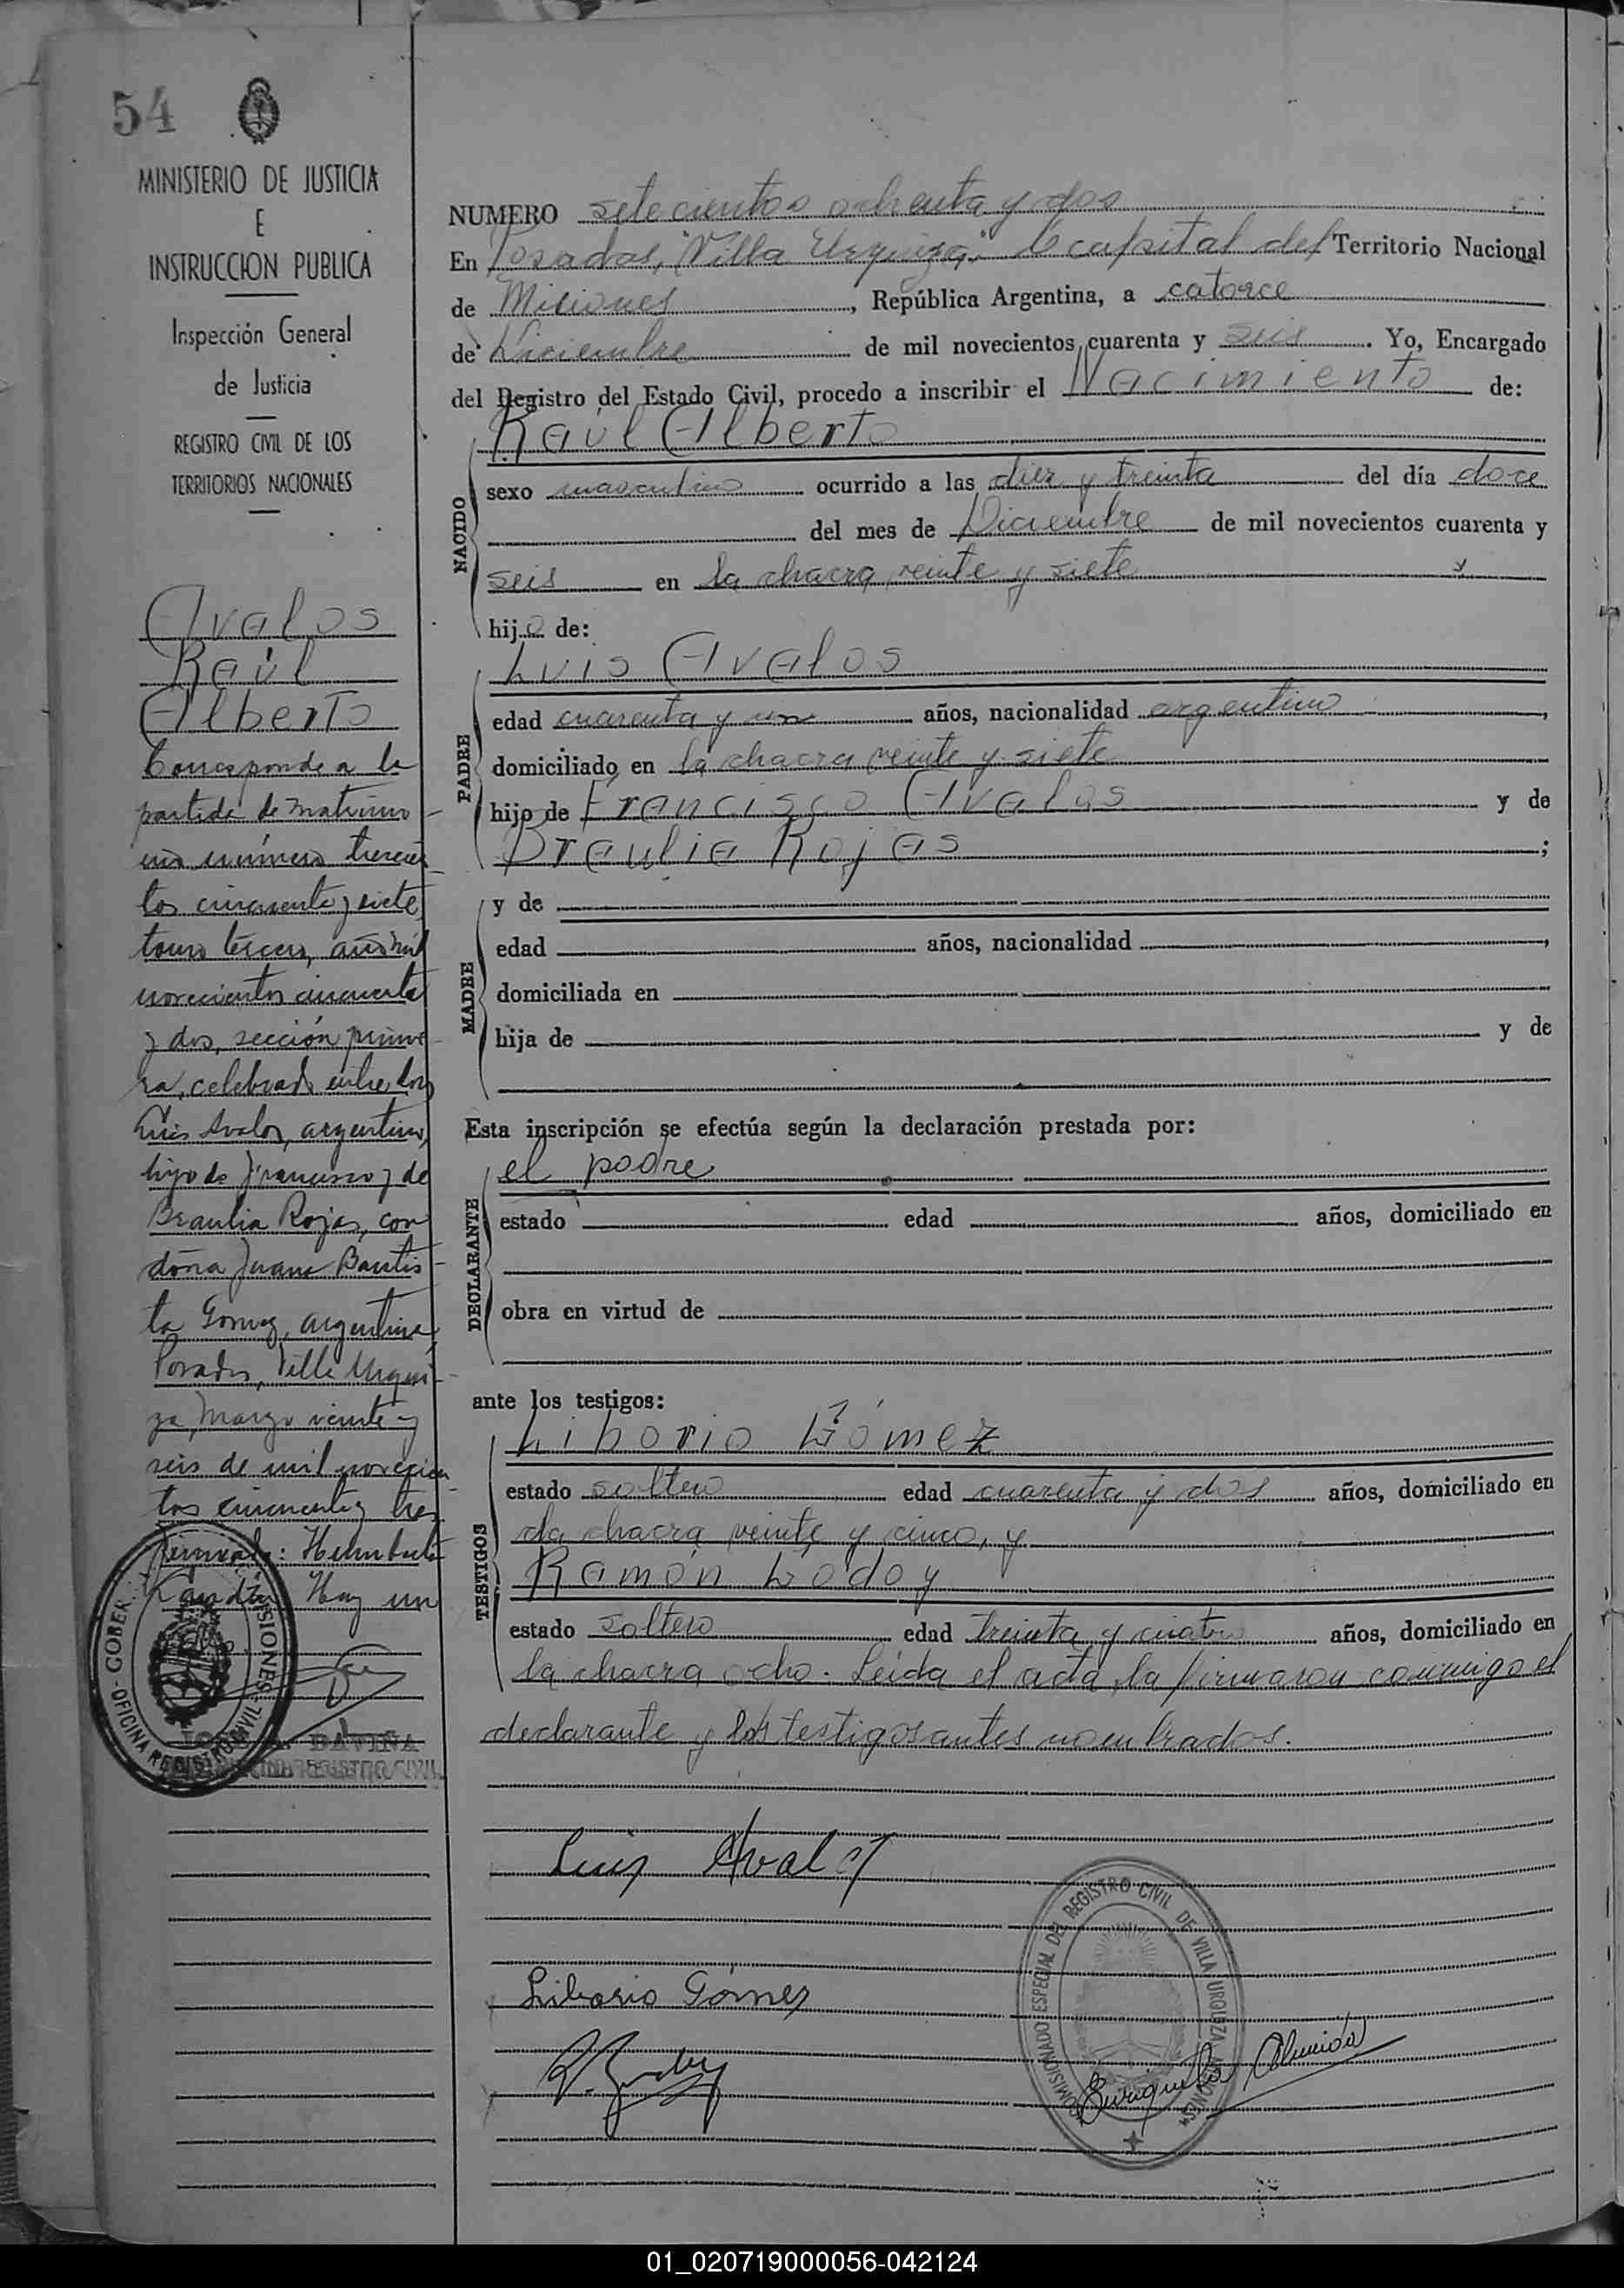 54
MINISTERIO DE JUSTICIA
E
INSTRUCCION PUBLICA
Inspección General
de Justicia
REGISTRO CIVIL DE LOS
TERRITORIOS NACIONALES
Avalos
Raúl
Alberto
Corresponde a la
partida de matrimo-
nio número trescien-
tos cincuenta y siete,
tomo tercero, año mil
novecientos cincuenta
y dos, sección prime-
ra, celebrado entre don
Luis Avalos, argentino,
hijo de Francisco y de
Braulia Rojas, con
doña Juana Bautis-
ta Gomez, argentina
Posadas, Villa Urqui-
za, Marzo veinte y
seis de mil novecien-
tos cincuenta y tres
Firmado: Humberto
Hay un
GOBER. MISIONES
OFICINA REGISTRO CIVIL
NUMERO setecientos ochenta y dos
En Posadas, "Villa Urquiza", Capital del Territorio Nacional
de Misiones, República Argentina, a catorce
de Diciembre de mil novecientos cuarenta y seis. Yo, Encargado
del Registro del Estado Civil, procedo a inscribir el Nacimiento de:
Raúl Alberto
NACIDO
sexo masculino ocurrido a las diez y treinta del día doce
del mes de Diciembre de mil novecientos cuarenta y
seis en la chacra veinte y siete
hijo de:
Luis Avalos
PADRE
edad cuarenta y un años, nacionalidad argentino,
domiciliado en la chacra veinte y siete
hijo de Francisco Avalos y de
Braulia Rojas;
MADRE
y de
edad años, nacionalidad,
domiciliada en
hija de y de
Esta inscripción se efectúa según la declaración prestada por:
el padre
DECLARANTE
estado edad años, domiciliado en
obra en virtud de
ante los testigos:
Liborio Gómez
TESTIGOS
estado soltero edad cuarenta y dos años, domiciliado en
la chacra veinte y cinco, y
Ramón Godoy
estado soltero edad treinta y cuatro años, domiciliado en
la chacra ocho. Leída el acta, la firmaron conmigo el
declarante y los testigos antes nombrados.
Luis Avalos
Liborio Gómez
COMISIONADO ESPECIAL DEL REGISTRO CIVIL DE VILLA URQUIZA MISIONES
Almeida
01_020719000056-042124